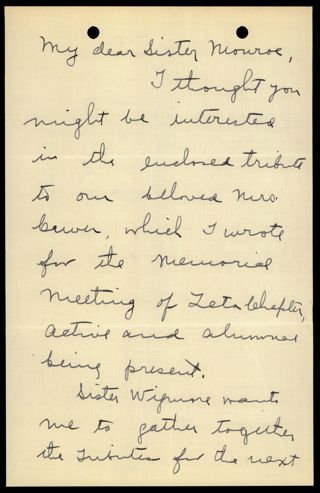 My dear Sister Monroe,
I thought you
might be interested
in the enclosed tribute
to our beloved Mrs.
which I wrote
for the memorial
meeting of Zeta Chapter,
active and alumnae
being present.
Sister Wigmore wants
me to gather together
the tributes for the next